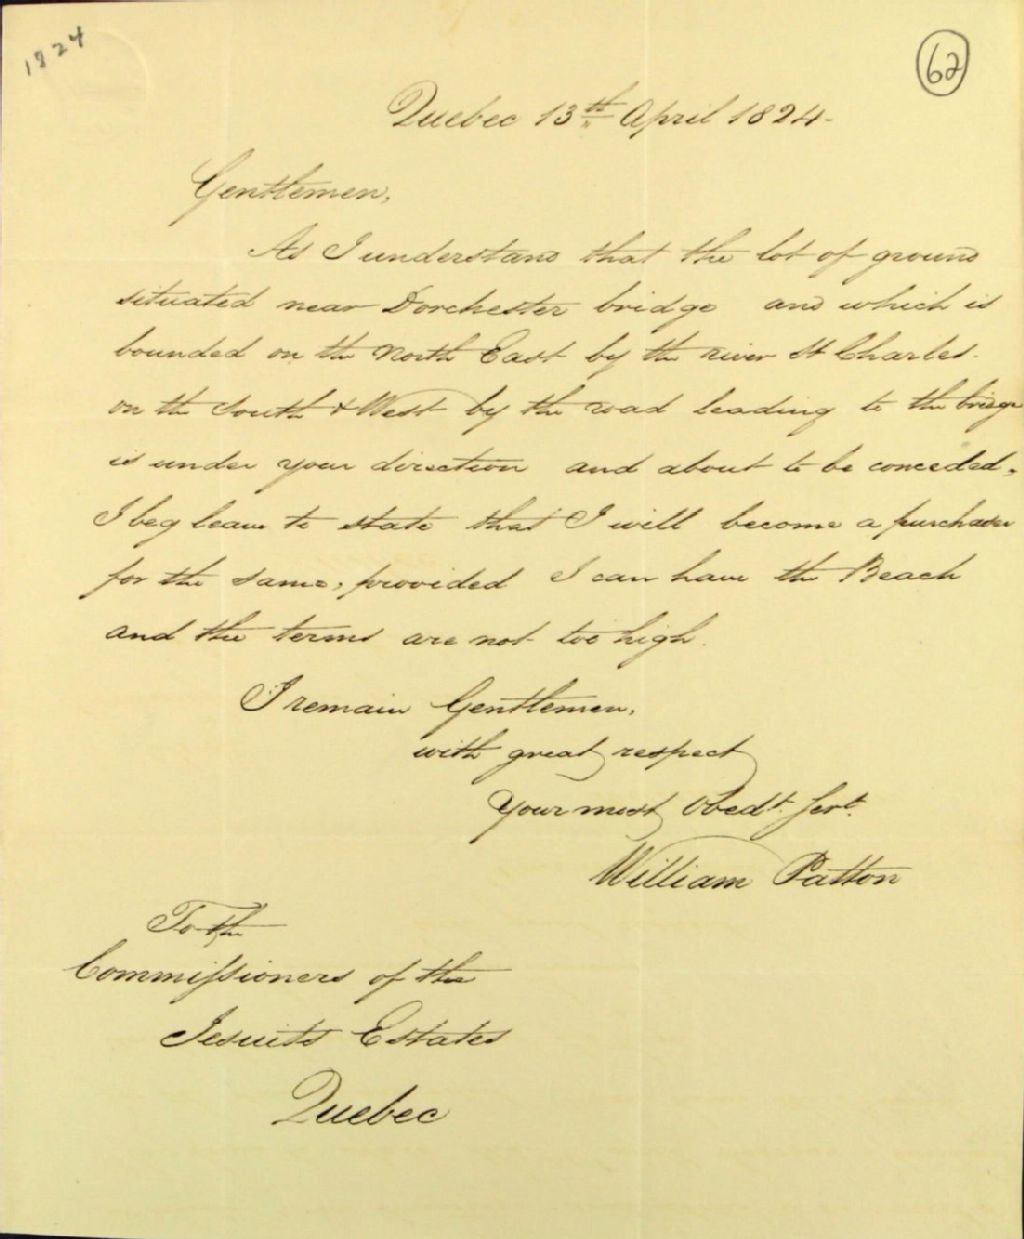 1824
62
Quebec 13th April 1824-
Gentlemen,
As I understand that the lot of ground
situated near Dorchester bridge and which is
bounded on the North East by the river St Charles-
on the South & West by the road leading to the bridge
is under your direction and about to be conceded,
I beg leave to state that I will become a purchaser
for the same, provided I can have the Beach
and the terms are not too high.
I remain Gentlemen,
with great respect
Your most Obedt. Servt.
William Patton
To the
Commissioners of the
Jesuits Estates
Quebec